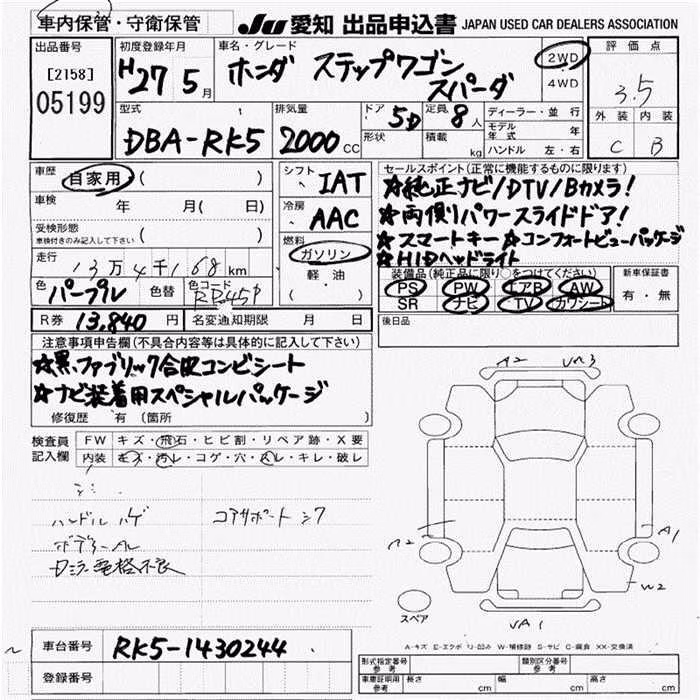 車内保管・守衛保管
JU 愛知 出品申込書 JAPAN USED CAR DEALERS ASSOCIATION
出品番号
[2158]
05199
初度登録年月
H27 5月
車名・グレード
ホンダ ステップワゴン
スパーダ
2WD
4WD
評価点
3.5
外装 内装
C B
型式
DBA-RK5
排気量
2000 CC
ドア 5D
形状
定員 8人
積載 kg
ディーラー・並行
モデル年式 年
ハンドル 左・右
車歴 自家用 ( )
車検 年 月(登録 日)
受検形態
車検付きのみ記入して下さい ( )
走行 13万4千168km
色 パープル 色替 色コード RP45P
R券 13,840円 名変通知期限 月 日
シフト IAT
冷房 AAC
燃料
ガソリン
軽油
( )
セールスポイント(正常に機能するものに限ります)
☆純正ナビ/DTV/Bカメラ!
☆両側パワースライドドア!
☆スマートキー ☆コンフォートビューパッケージ
☆HIDヘッドライト
装備品(純正品に限り○をつけてください)
PS PW エアB AW
SR ナビ TV カワシート
新車保証書
有・無
後日品
注意事項申告欄(不具合内容等は具体的に記入して下さい)
☆黒ファブリック合皮コンビシート
☆ナビ装着用スペシャルパッケージ
修復歴 有(箇所 )
検査員記入欄
FW キズ・飛石・ヒビ割・リペア跡・X要
内装 キズ・汚レ・コゲ・穴・スレ・キレ・破レ
ハンドルハゲ コアサポートシワ
ミラー電格不良
A2
A2
A1
W2
VA1
スペア
A-キズ E-エクボ U-凹み W-補修跡 S-サビ C-腐食 XX-交換済
車台番号 RK5-1430244
登録番号
形式指定番号 参考
類別区分番号 参考
車庫証明用 参考 長さ cm 幅 cm 高さ cm